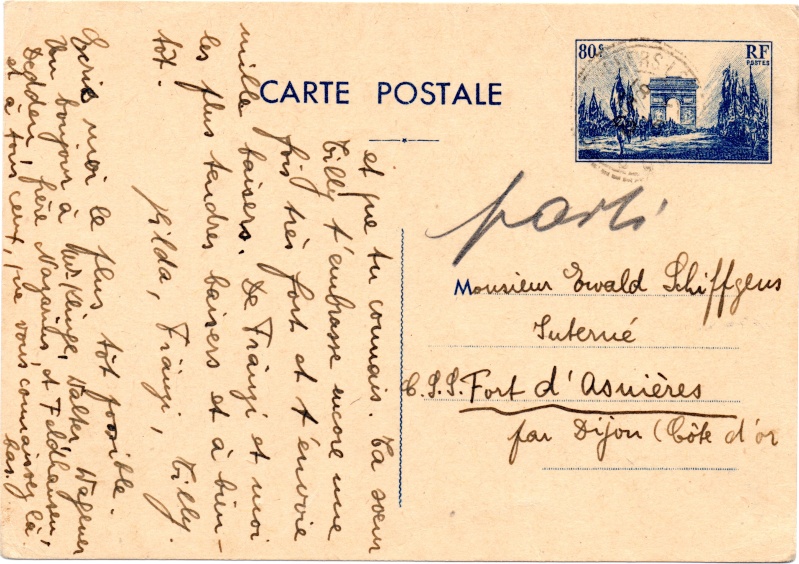 80c
RF
POSTES
CARTE POSTALE
parti
Monsieur Ewald Schiffgens
Interné
C.S.S. Fort d'Asnières
par Dijon (Côte d'or
et que tu connais. Ta sœur
Cilly t'embrasse encore une
fois très fort et t'envoie
mille baisers. De Fränzi et moi
les plus tendres baisers et à bien-
tôt.
Hilda, Fränzi, Cilly.
Ecris moi le plus tôt possible.
Un bonjour à Klinge, Walter Wagener
Dedden, frère Nazarius, et Feldhausen,
et à tous ceux, que vous connaissez là
bas.